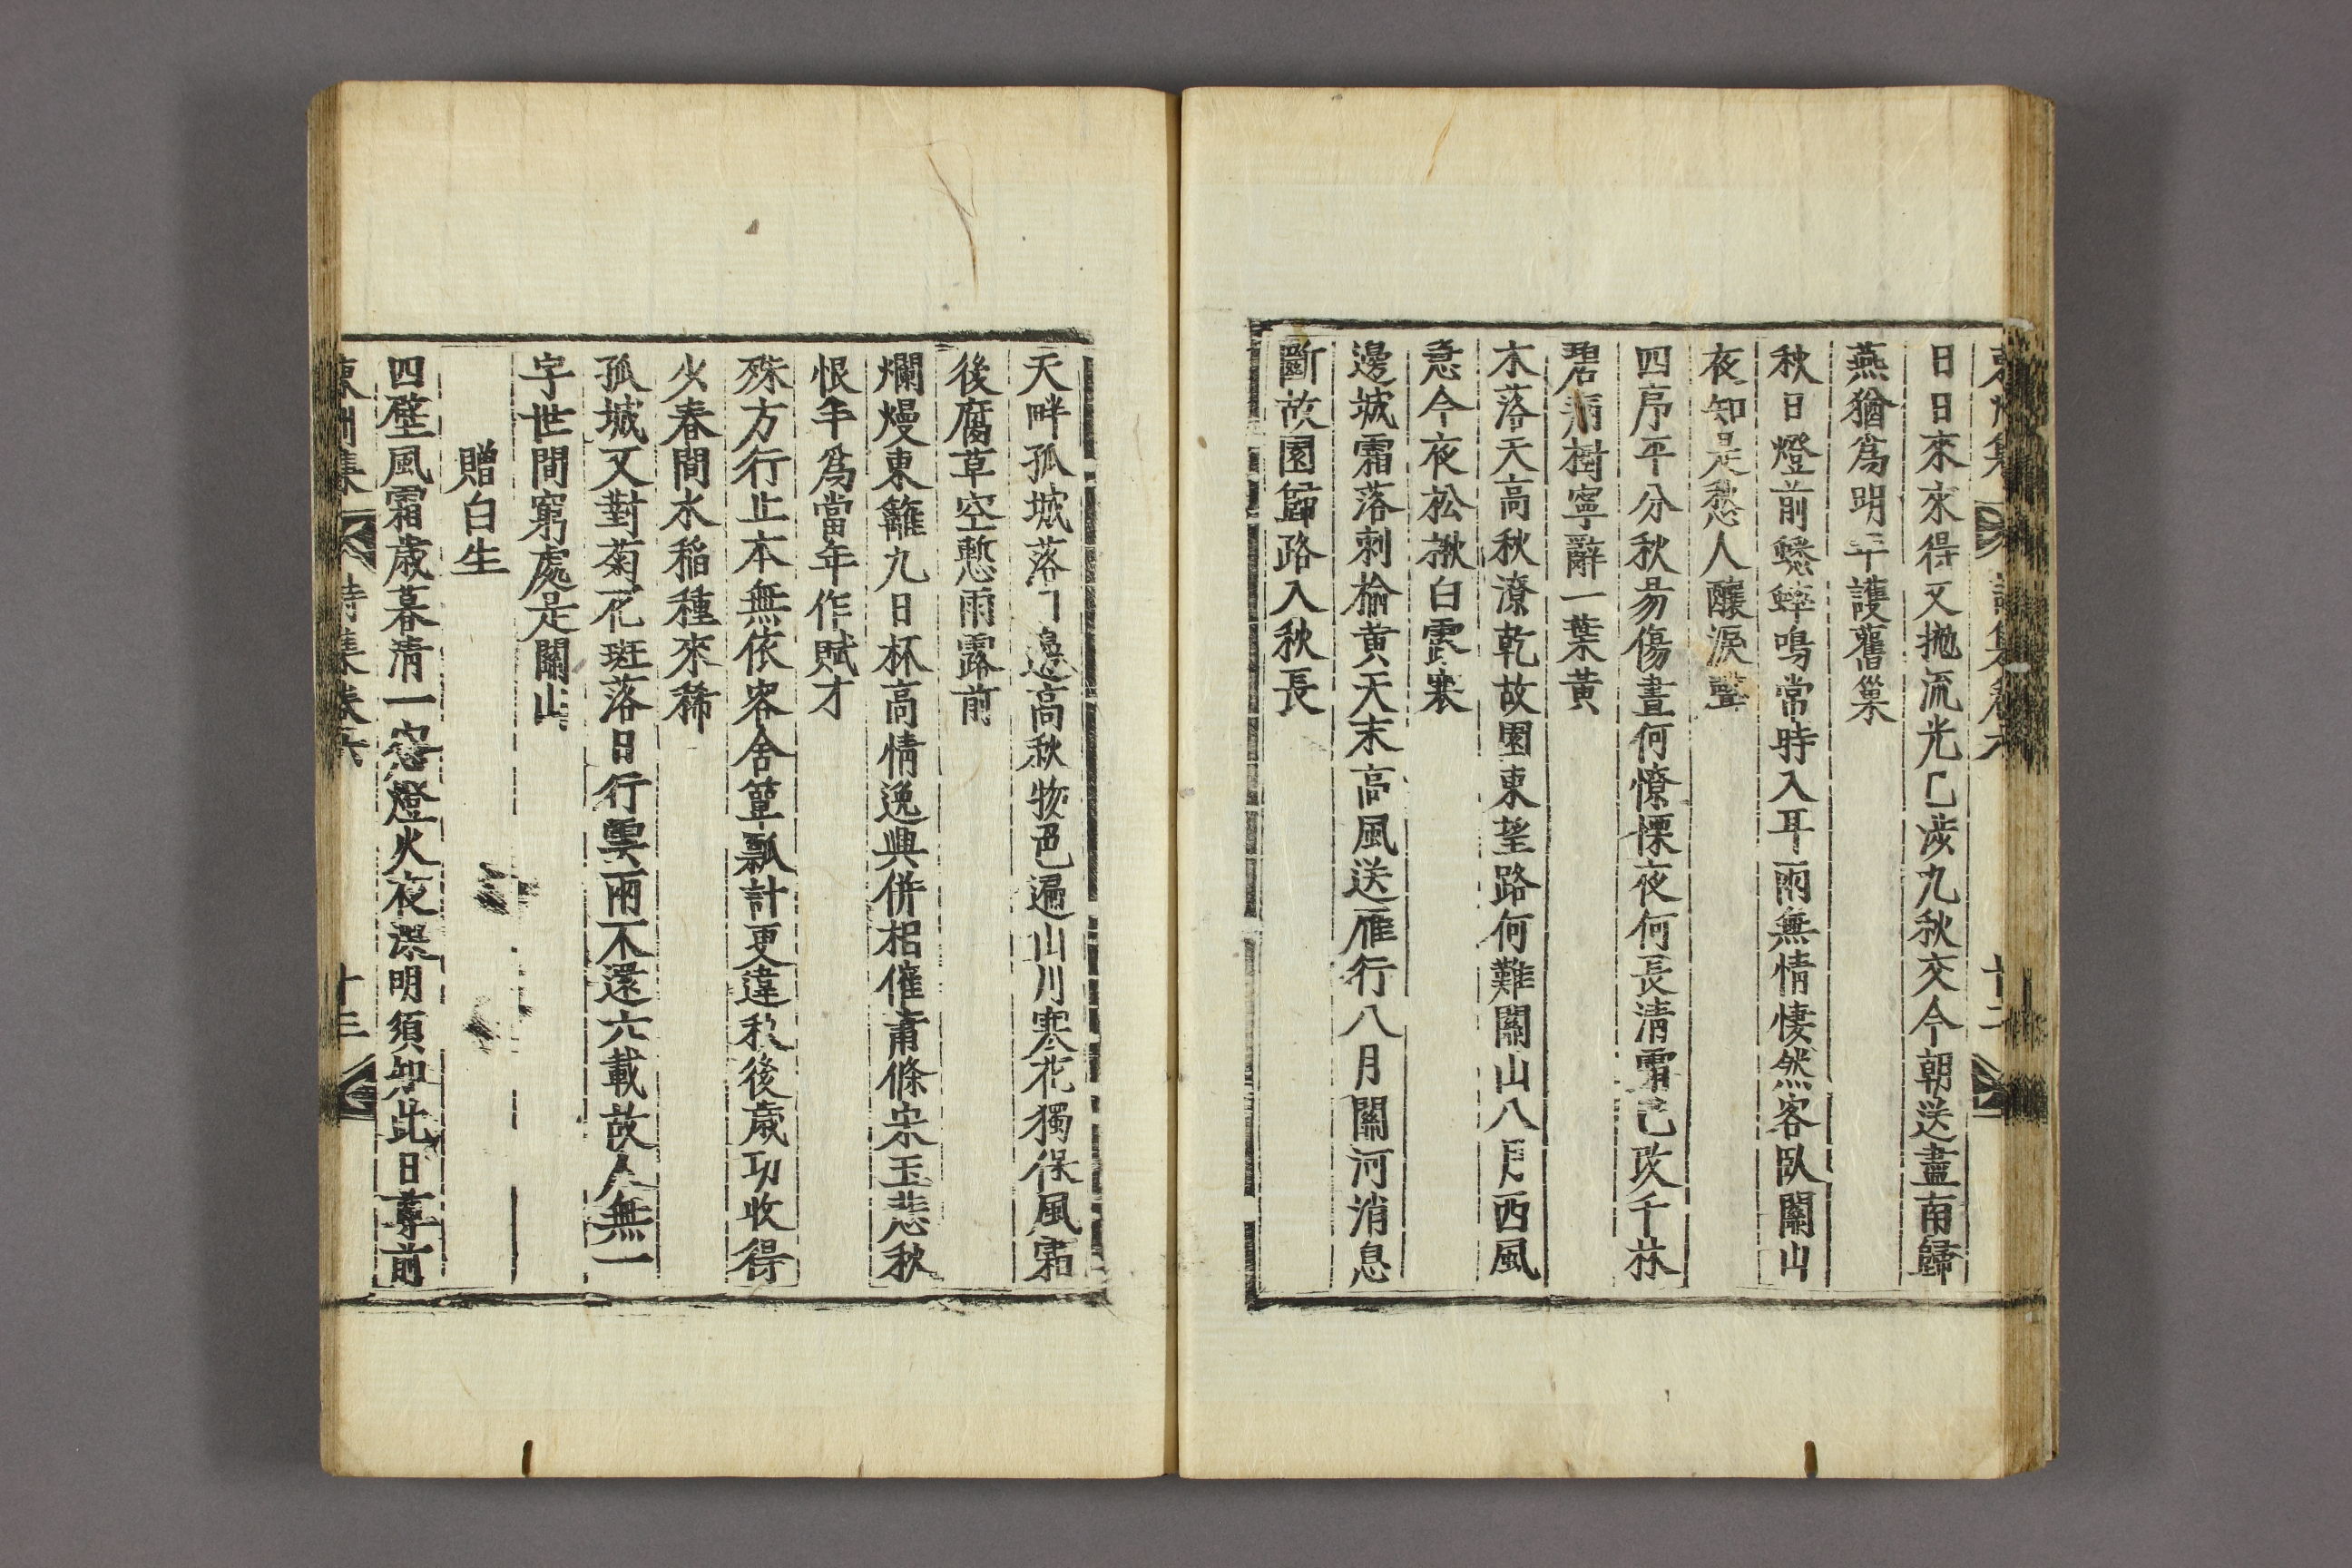 東州集 詩集卷六 十二
日日來來得又拋流光已涉九秋交今朝送盡南歸
燕猶爲明年護舊巢
秋日燈前蟋蟀鳴常時入耳兩無情悽然客臥關山
夜知是愁人釀淚聲
四序平分秋易傷晝何憭慄夜何長清霜已改千林
碧病樹寧辭一葉黃
木落天高秋潦乾故園東望路何難關山八月西風
急今夜松楸白露寒
邊城霜落刺楡黃天末高風送雁行八月關河消息
斷故園歸路入秋長
天畔孤城落日邊高秋物色遍山川寒花獨保風霜
後腐草空慙雨露前
爛熳東籬九日杯高情逸興併相催蕭條宋玉悲秋
恨乎爲當年作賦才
殊方行止本無依客舍簞瓢計更違秋後歲功收得
少春間水稻種來稀
孤城又對菊花斑落日行雲雨不還六載故人無一
字世間窮處是關山
贈白生
四壁風霜歲暮淸一窓燈火夜深明須知此日尊前
東州集 詩集卷六 十三